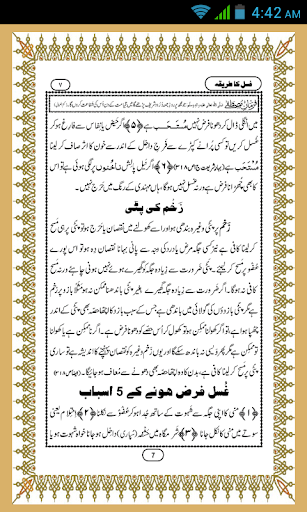 4:42 AM
غسل کا طریقہ
۷
میں انگلی ڈال کر دھونا فرض نہیں مستحب ہے ﴿۵﴾ اگر حیض یا نفاس سے فارغ ہو کر
غسل کریں تو کسی پرانے کپڑے سے فرج کے اندر سے خون کا اثر صاف کر لینا
مستحب ہے (بہارِ شریعت ج۱ ص۳۱۸) ﴿۶﴾ اگر نیل پالش ناخنوں پر لگی ہوئی ہے تو
اس کا بھی چھڑانا فرض ہے ورنہ غسل نہیں ہوگا، ہاں مہندی کے رنگ میں حرج نہیں۔
زخم کی پٹی
زخم پر پٹی وغیرہ بندھی ہو اور اسے کھولنے میں نقصان یا حرج ہو تو پٹی پر ہی مسح
کر لینا کافی ہے نیز کسی جگہ مرض یا درد کی وجہ سے پانی بہانا نقصان دہ ہو تو اس پورے
عضو پر مسح کر لیجئے۔ پٹی ضرورت سے زیادہ جگہ کو گھیرے ہوئے نہیں ہونی چاہئے ورنہ مسح
کافی نہ ہوگا۔ اگر ضرورت سے زیادہ جگہ گھیرے بغیر پٹی باندھنا ممکن نہ ہو مثلاً بازو پر زخم
ہے مگر پٹی بازوؤں کی گولائی میں باندھی ہے جس کے سبب بازو کا اچھا حصہ بھی پٹی کے اندر
چھپا ہوا ہے، تو اگر کھولنا ممکن ہو تو کھول کر اُس حصے کو دھونا فرض ہے۔ اگر ناممکن ہے یا کھولنا
تو ممکن ہے مگر پھر ویسی نہ باندھ سکے گا اور یوں زخم وغیرہ کو نقصان پہنچنے کا اندیشہ ہے تو ساری
پٹی پر مسح کر لینا کافی ہے، بدن کا وہ اچھا حصہ بھی دھونے سے معاف ہو جائے گا۔ (ایضاً ص۳۱۸)
غسل فرض ہونے کے 5 اسباب
﴿۱﴾ منی کا اپنی جگہ سے شہوت کے ساتھ جدا ہو کر عضو سے نکلنا ﴿۲﴾ احتلام یعنی
سوتے میں منی کا نکل جانا ﴿۳﴾ شرمگاہ میں حشفہ (سپاری) داخل ہو جانا خواہ شہوت ہو یا
7